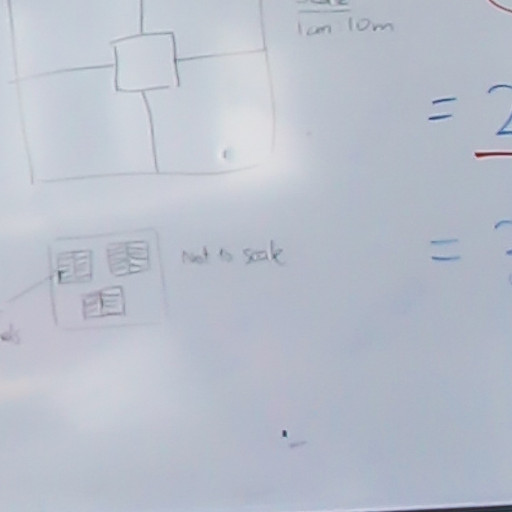 1cm : 10m
= 2
Not to scale
=